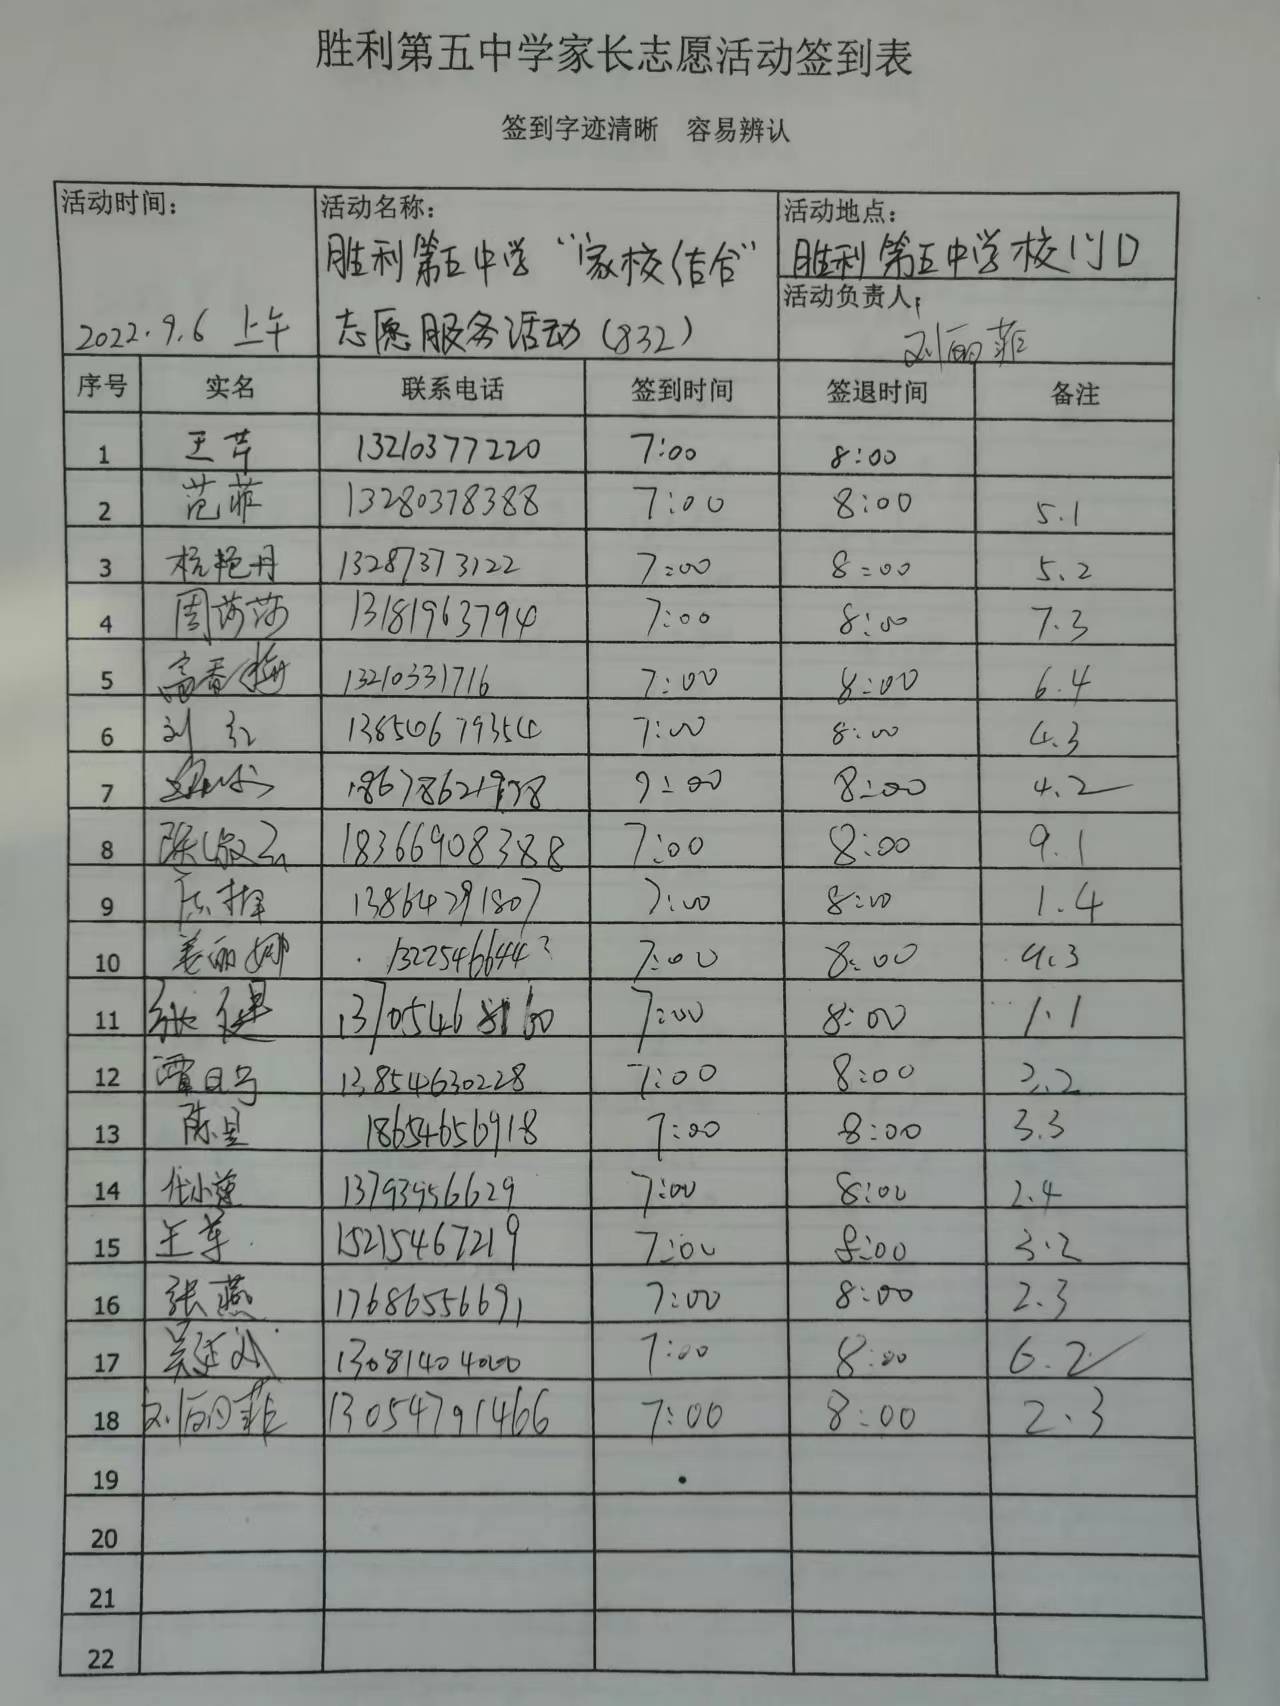 胜利第五中学家长志愿活动签到表
签到字迹清晰 容易辨认
活动时间:
2022.9.6 上午
活动名称:
胜利第五中学“家校结合”
志愿服务活动(832)
活动地点:
胜利第五中学校门口
活动负责人:
刘丽菲
序号 实名 联系电话 签到时间 签退时间 备注
1 王芹 13210377220 7:00 8:00
2 范菲 13280378388 7:00 8:00 5.1
3 杭艳丹 13287373122 7:00 8:00 5.2
4 周莎莎 13181963794 7:00 8:00 7.3
5 高春梅 13210331716 7:00 8:00 6.4
6 刘红 13854679354 7:00 8:00 4.3
7 8:00 4.2
8 18366908388 7:00 8:00 9.1
9 13864291807 7:00 8:00 1.4
10 姜丽娜 7:00 8:00 9.3
11 张健 7:00 8:00 1.1
12 13854630228 7:00 8:00
13 陈星 18654656918 7:00 8:00 3.3
14 代小莲 13793956629 7:00 8:00 2.4
15 王军 15215467219 7:00 8:00 3.2
16 张燕 17686556691 7:00 8:00 2.3
17 13081404000 7:00 8:00 6.2
18 刘丽菲 13054791466 7:00 8:00 2.3
19
20
21
22